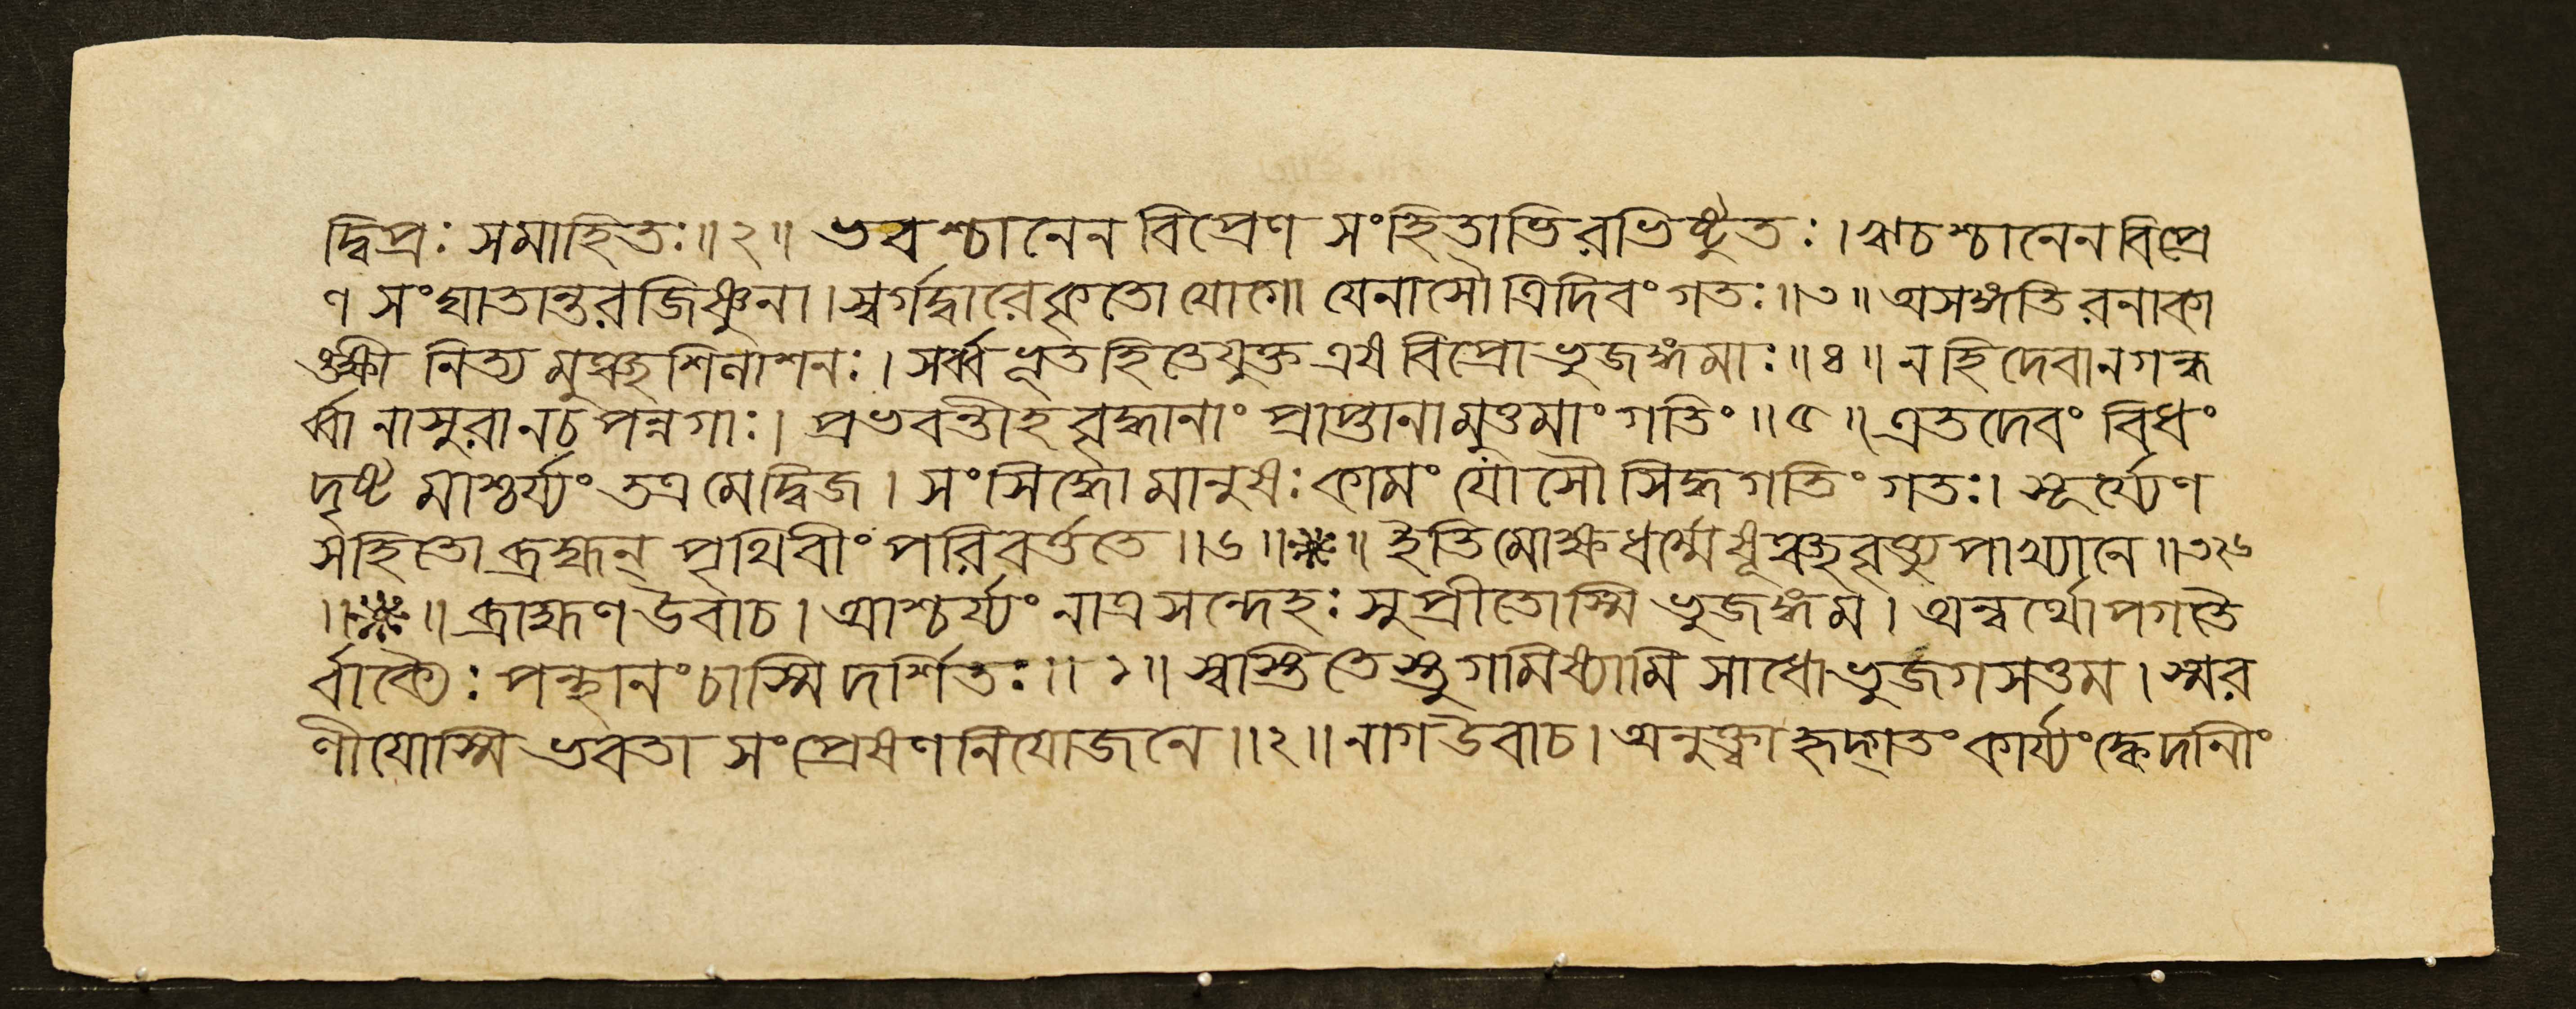 দ্বিপ্রঃ সমাহিতঃ॥২॥ ভবশ্চানেন বিপ্রেণ সংহিতাভিরভিষ্টুতঃ।ঋচশ্চানেন বিপ্রে
ণ সংঘাতান্তরজিষ্ণুনা।স্বর্গদ্বারে কৃতো যোগো যেনাসৌ ত্রিদিবং গতঃ॥৩॥ অসঙ্গতিরনাকা
ঙ্ক্ষী নিত্যমুঞ্ছশিলাশনঃ। সর্ব্বভূতহিতে যুক্ত এষ বিপ্রো ভুজঙ্গমাঃ॥৪॥ ন হি দেবা ন গন্ধ
র্ব্বা নাসুরা ন চ পন্নগাঃ। প্রভবন্তীহ ভূতানাং প্রাপ্তানামুত্তমাং গতিং॥৫॥ এতদেবং বিধং
দৃষ্টমাশ্চর্য্যং তত্র মে দ্বিজ। সংসিদ্ধো মানুষঃ কামং যোসৌ সিদ্ধগতিং গতঃ। সূর্য্যেণ
সহিতো ব্রহ্মন্ পৃথিবীং পরিবর্ত্ততে॥৬॥ ॥ ইতি মোক্ষধর্ম্মেষূঞ্ছবৃত্ত্যুপাখ্যানে॥৩২৬
॥ ॥ ব্রাহ্মণ উবাচ। আশ্চর্য্যং নাত্র সন্দেহঃ সুপ্রীতোস্মি ভুজঙ্গম। অন্বর্থোপগতৈ
র্বাক্যৈঃ পন্থানং চাস্মি দর্শিতঃ॥১॥ স্বস্তি তেস্তু গমিষ্যামি সাধো ভুজগসত্তম। স্মর
ণীয়োস্মি ভবতা সংপ্রেষণনিযোজনে॥২॥ নাগ উবাচ। অনুক্ত্বা হৃদ্গতং কার্য্যং ক্বেদানীং